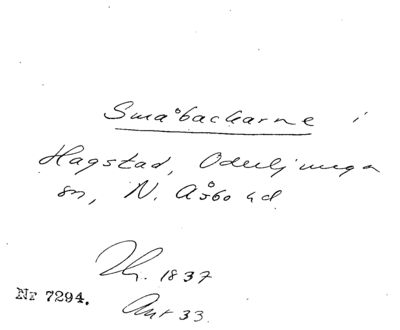 Småbackarne i
Hagstad, Oderljunga
sn, N. Åsbo hd
1837
Nr 7294.
Akt 33.